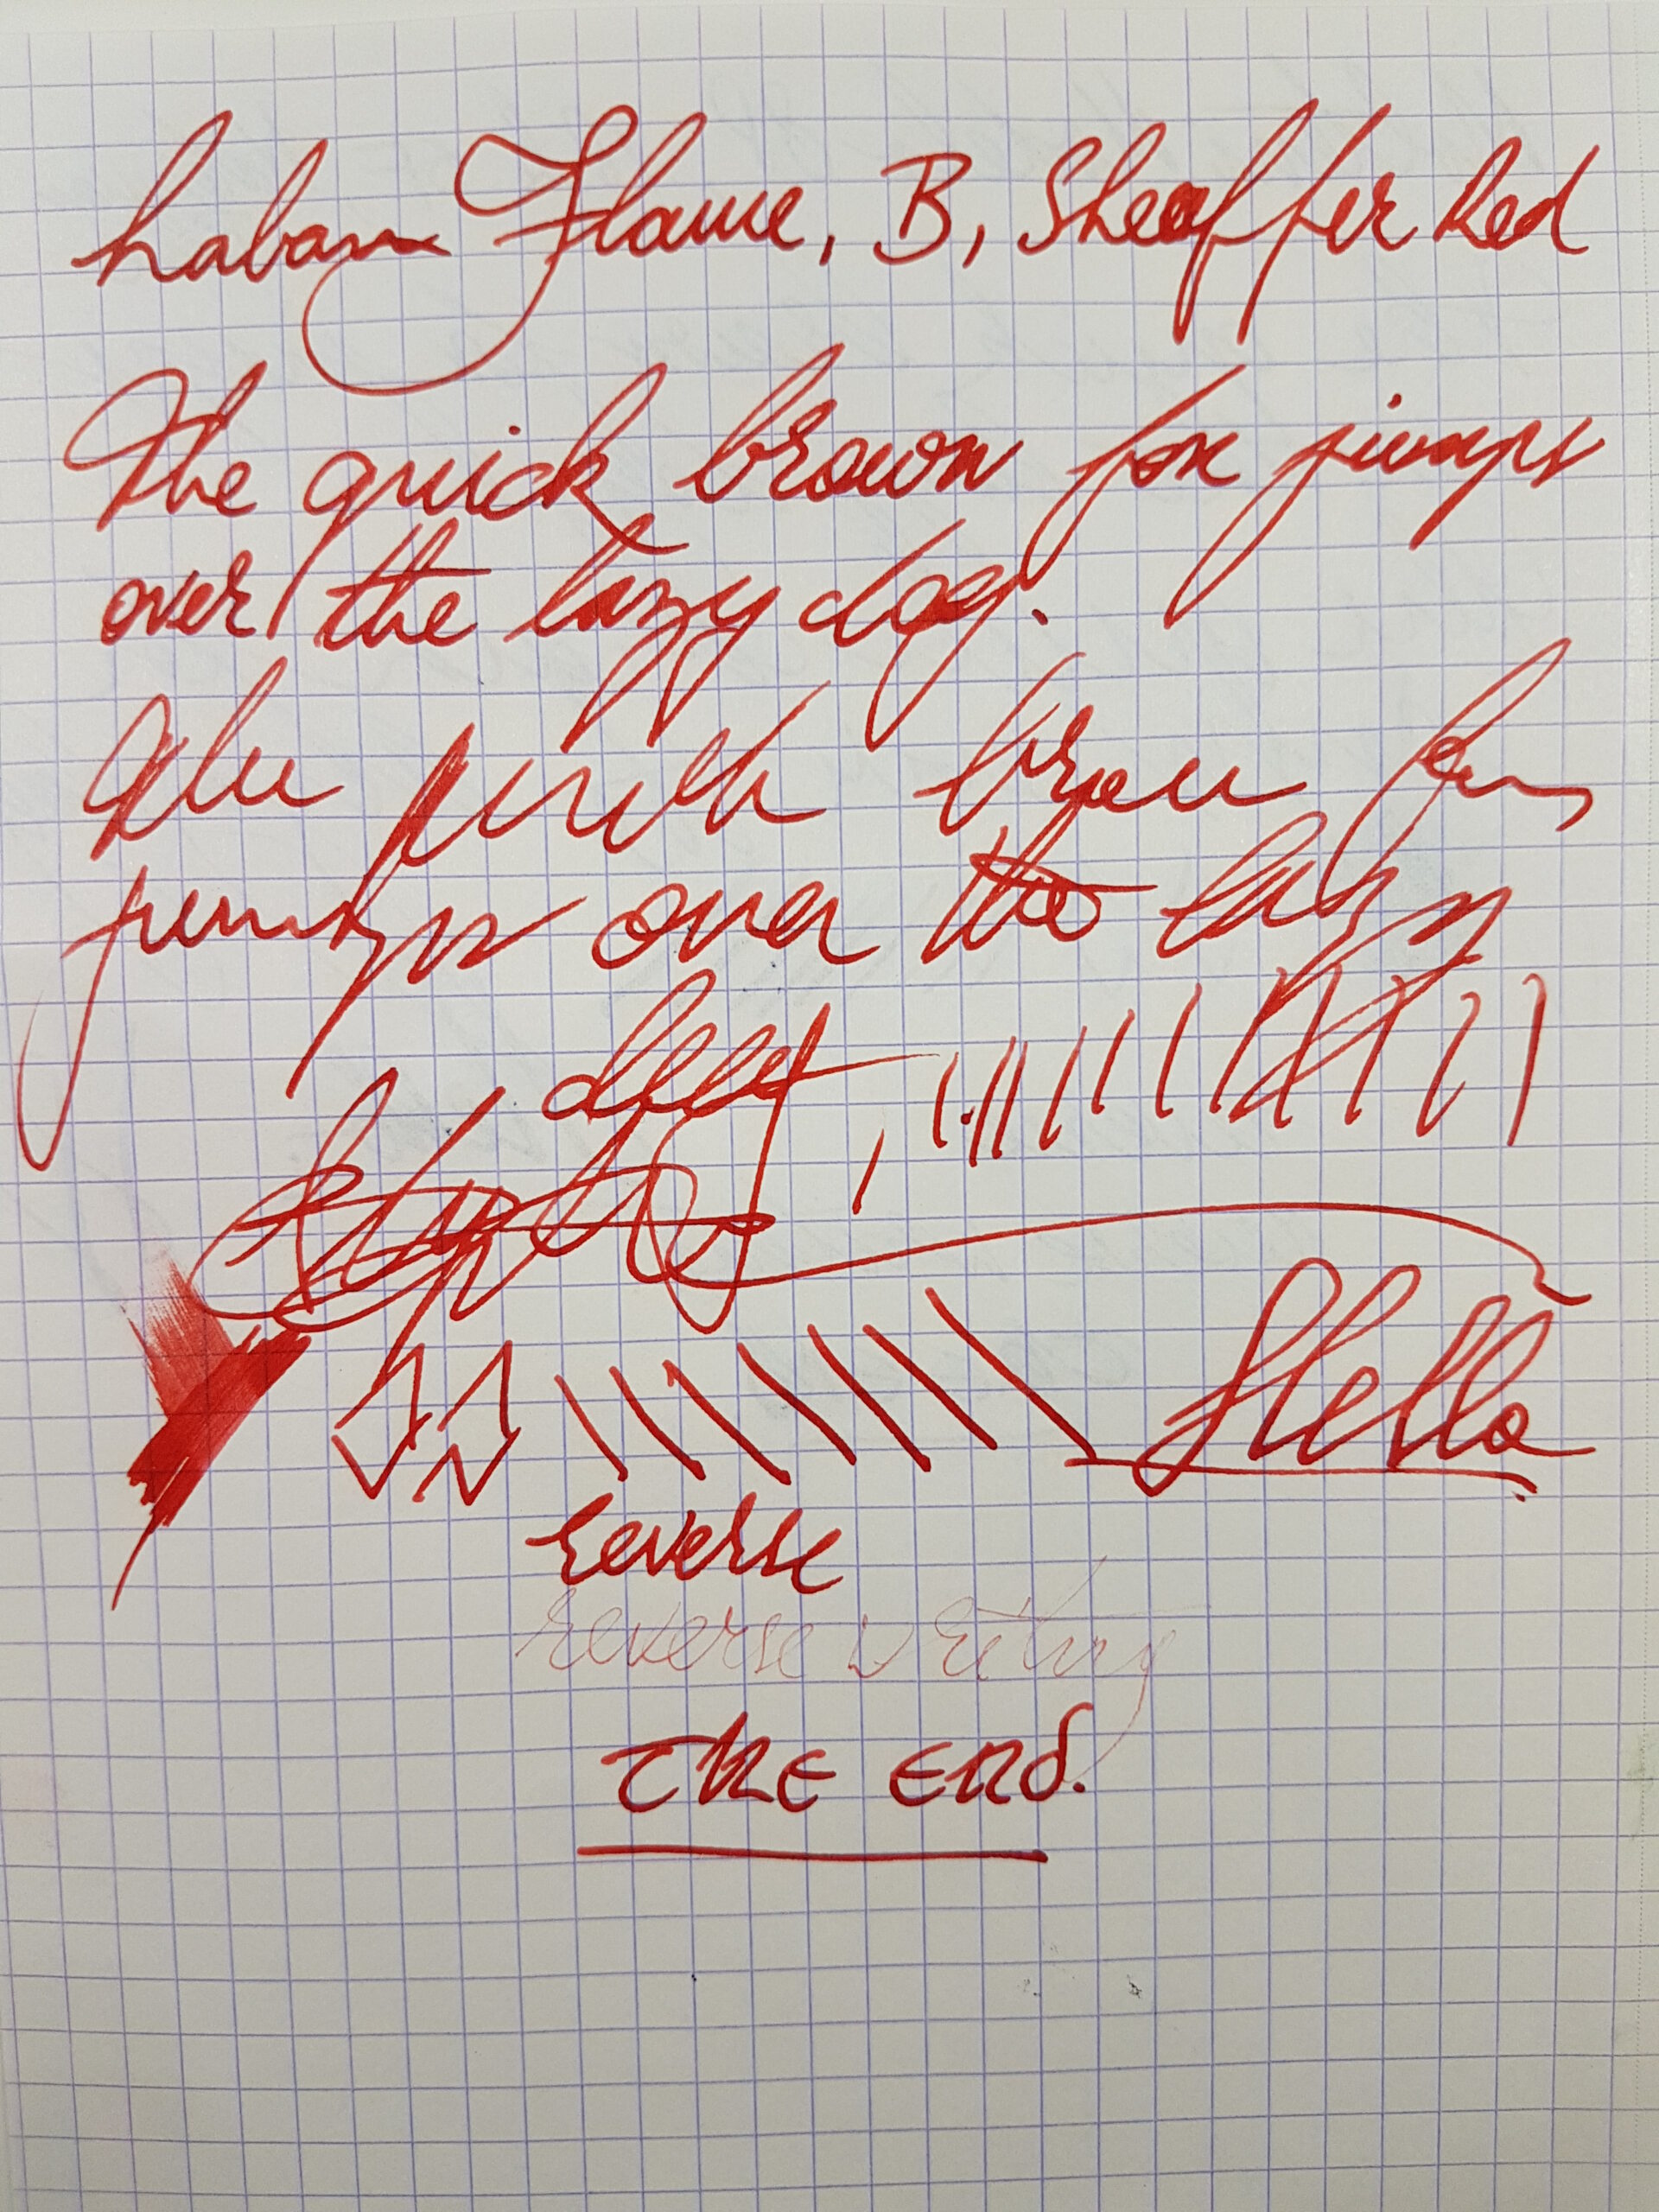 Laban Flame, B, Sheaffer Red
The quick brown fox jumps
over the lazy dog.
over the lazy
Hello
reverse
reverse writing
The End.